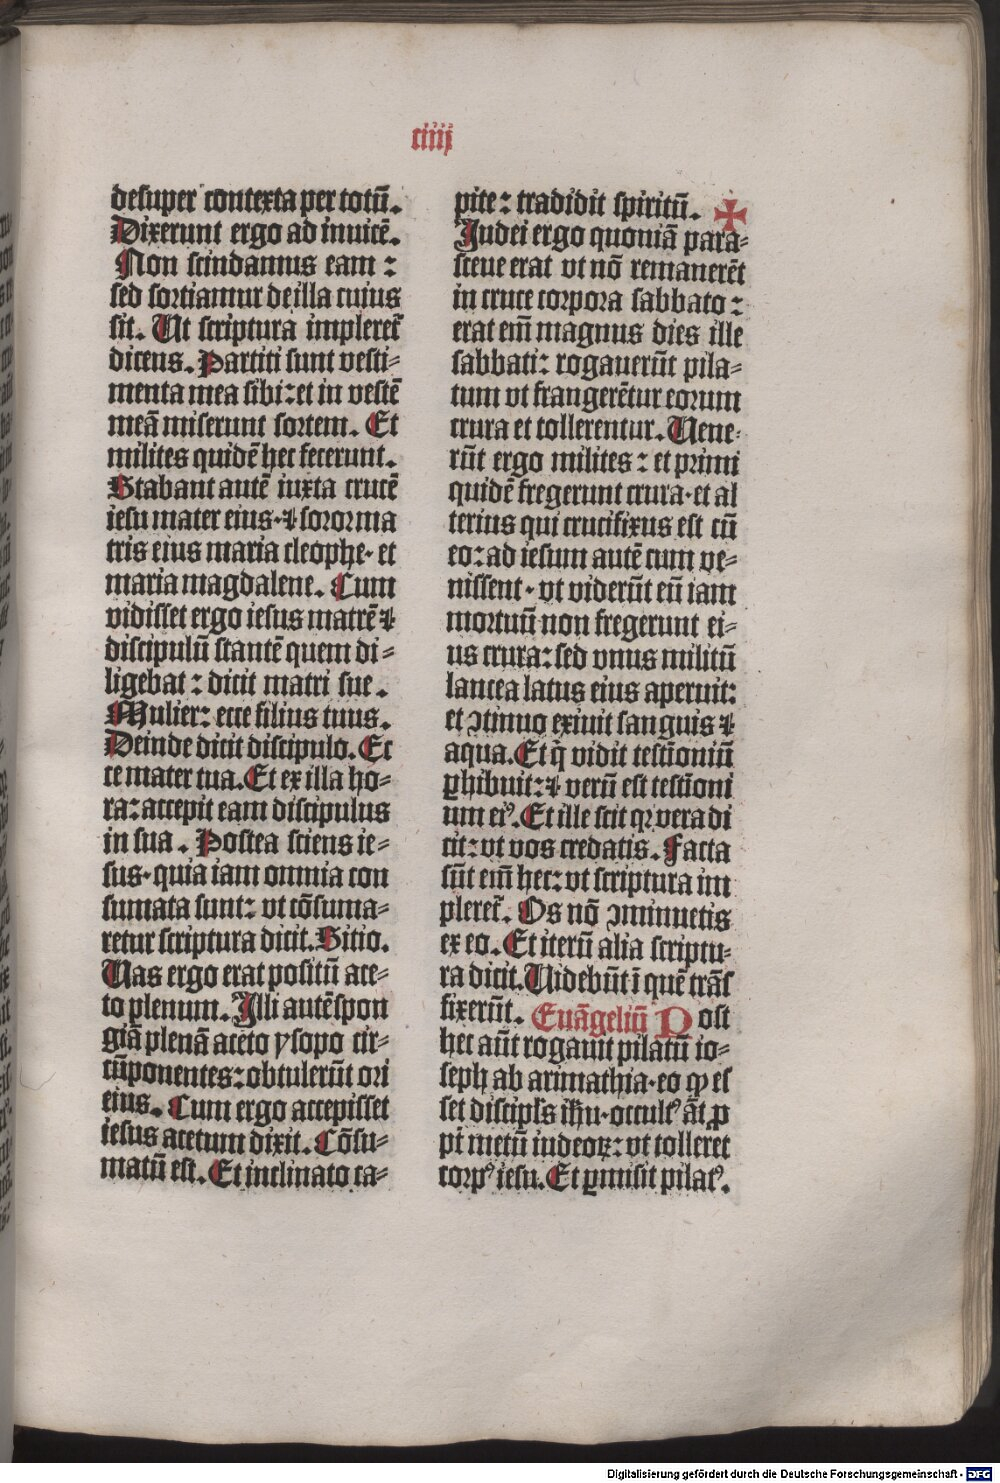 ciiij
desuper contexta per totū.
Dixerunt ergo ad inuicē.
Non scindamus eam :
sed sortiamur de illa cuius
sit. Ut scriptura implereĩ
dicens. Partiti sunt vesti-
menta mea sibi: et in vestē
meā miserunt sortem. Et
milites quidē hec fecerunt.
Stabant autē iuxta crucē
iesu mater eius·⁊ soror ma
tris eius maria cleophe· et
maria magdalene. Cum
vidisset ergo iesus matrē ⁊
discipulū stantē quem di-
ligebat : dicit matri sue.
Mulier: ecce filius tuus.
Deinde dicit discipulo. Ec
ce mater tua. Et ex illa ho-
ra: accepit eam discipulus
in sua. Postea sciens ie-
sus· quia iam omnia con
sumata sunt: vt cōsuma-
retur scriptura dicit. Sitio.
Uas ergo erat positū ace-
to plenum. Illi autē spon
giā plenā aceto ysopo cir-
cūponentes: obtulerūt ori
eius. Cum ergo accepisset
iesus acetum dixit. Cōsu-
matū est. Et inclinato ca-
pite: tradidit spiritū. ✠
Judei ergo quoniā para-
sceue erat vt nō remanerēt
in cruce corpora sabbato :
erat em̄ magnus dies ille
sabbati: rogauerūt pila-
tum vt frangerētur eorum
crura et tollerentur. Uene-
rūt ergo milites: et primi
quidē fregerunt crura· et al
terius qui crucifixus est cū
eo: ad iesum autē cum ve-
nissent· vt viderūt eū iam
mortuū non fregerunt ei-
us crura: sed vnus militū
lancea latus eius aperuit:
et ↄtinuo exiuit sanguis ⁊
aqua. Et q̄ vidit testīoniū
ꝑhibuit: ⁊ verū est testīoni
um eiꝰ. Et ille scit qꝛ vera di
cit: vt vos credatis. Facta
sūt em̄ hec: vt scriptura im
plereĩ. Os nō ↄminuetis
ex eo. Et iterū alia scriptu-
ra dicit. Uidebūt ī quē trās
fixerūt. Euāgeliū Post
hec aūt rogauit pilatū io-
seph ab arimathia· eo ꝙ es
set discipl̄s ih̄u· occultꝰ āt ꝓ
pt̄ metū iudeoꝝ: vt tolleret
corpꝰ iesu. Et ꝑmisit pilatꝰ.
Digitalisierung gefördert durch die Deutsche Forschungsgemeinschaft - DFG